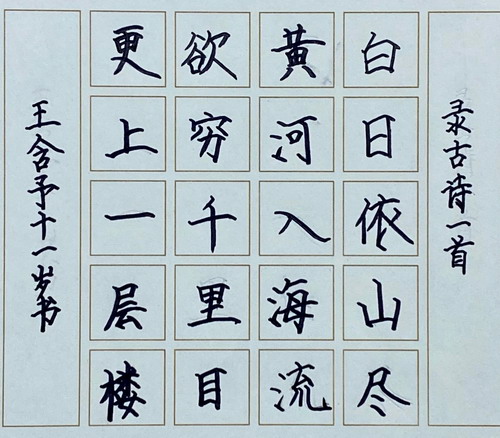 录古诗一首
白日依山尽
黄河入海流
欲穷千里目
更上一层楼
王含予十一岁书